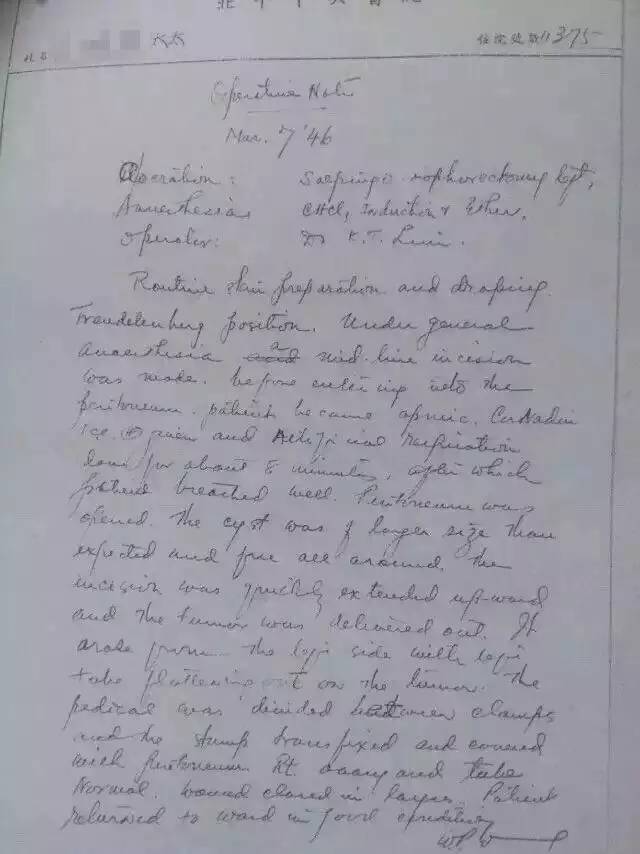 太太 住院號數11375
Operative Note
Mar. 7 '46
Operation: Salpingo oophorectomy left,
Anaesthesia CHCl3 Induction & Ether.
Operator: Dr K. T. Lim.
Routine skin preparation and draping.
Trendelenberg position. Under general
anaesthesia a mid-line incision
was made. before entering into the
peritoneum. patient became apnic.
given and Artificial respiration
done for about 8 minutes, after which
patient breathed well. Peritoneum was
opened. The cyst was of larger size than
expected and free all around. The
incision was quickly extended upward
and the tumor was delivered out. It
arose from the left side with left
tube flattening out on the tumor. The
pedical was divided between clamps
and the stump transfixed and covered
with peritoneum Rt. ovary and tube
Normal. Wound closed in layers. Patient
returned to ward in good condition